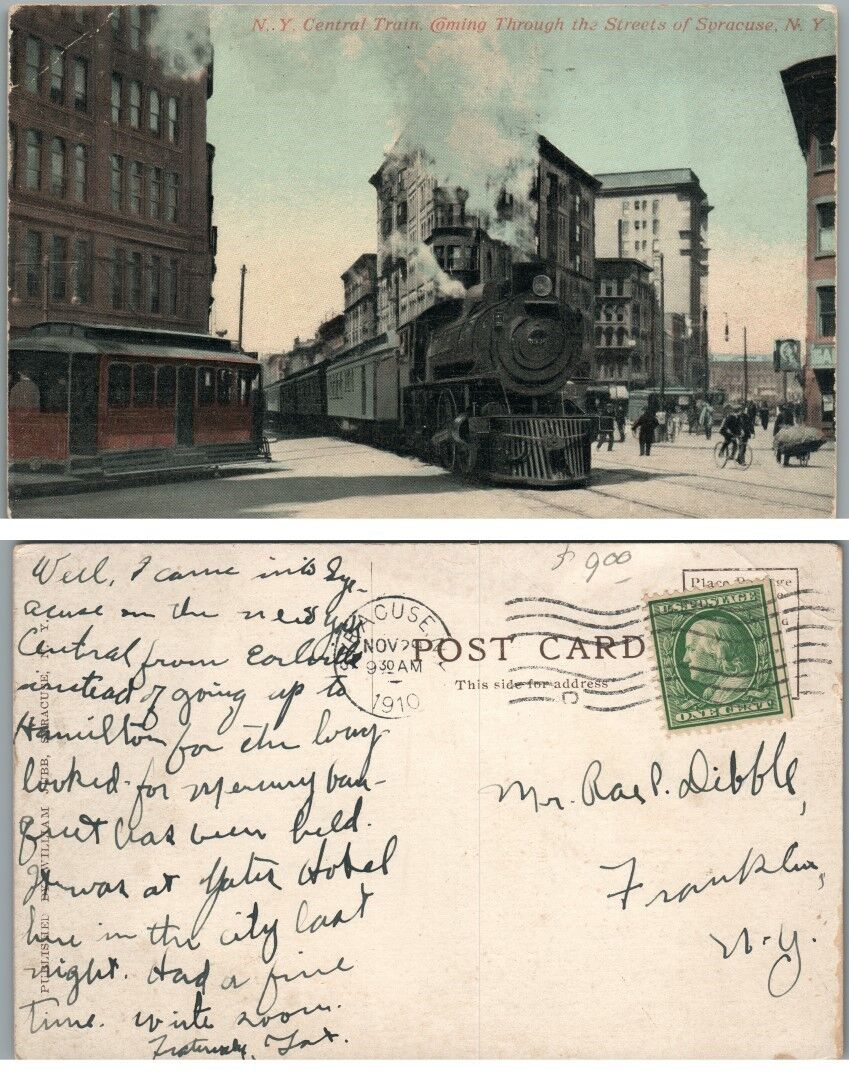 N. Y. Central Train, Coming Through the Streets of Syracuse, N. Y.
Well, I came into Syr-
acuse on the new York
Central from Earlville
instead of going up to
Hamilton for the long
looked-for Mercury ban-
quet has been held.
It was at Yates Hotel
here in the city last
night. Had a fine
time. Write soon.
Fraternally,
PUBLISHED BY WILLIAM JUBB, SYRACUSE, N. Y.
SYRACUSE, N.Y.
NOV 29
9 30 AM
1910
POST CARD
This side for address
$ 9.00
Place Postage
U.S. POSTAGE
ONE CENT
Mr. Rae P. Dibble,
Franklin,
N.Y.